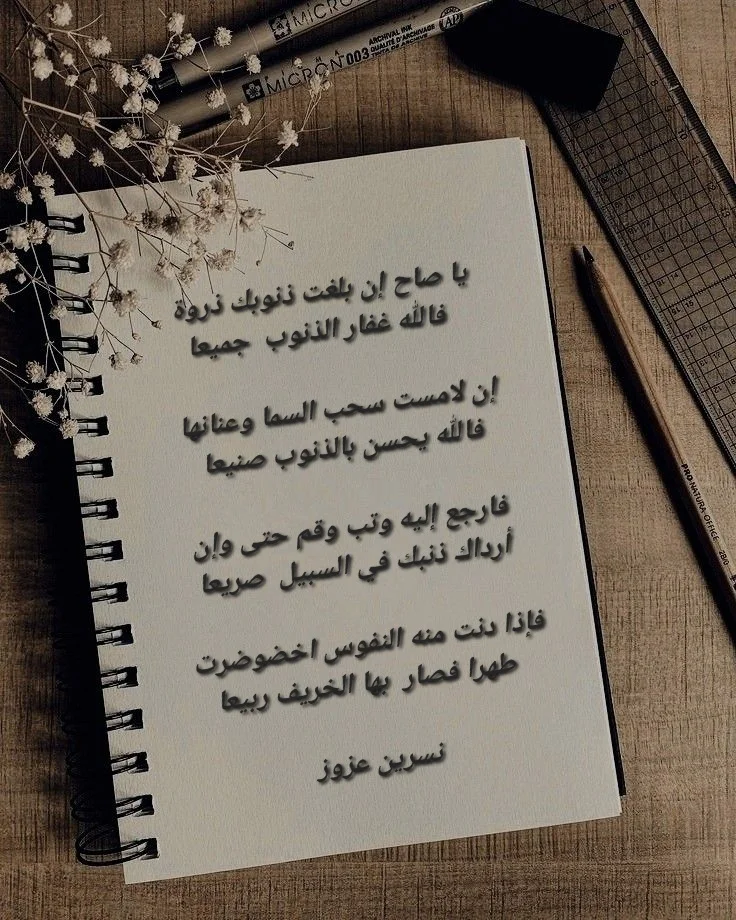 MICRON
MICRON 003
ARCHIVAL INK
QUALITÉ D'ARCHIVAGE
TINTA DE ARCHIVE
AP
يا صاح إن بلغت ذنوبك ذروة
فالله غفار الذنوب جميعا
إن لامست سحب السما وعنانها
فالله يحسن بالذنوب صنيعا
فارجع إليه وتب وقم حتى وإن
أرداك ذنبك في السبيل صريعا
فإذا دنت منه النفوس اخضوضرت
طهرا فصار بها الخريف ربيعا
نسرين عزوز
PRO NATURA OFFICE